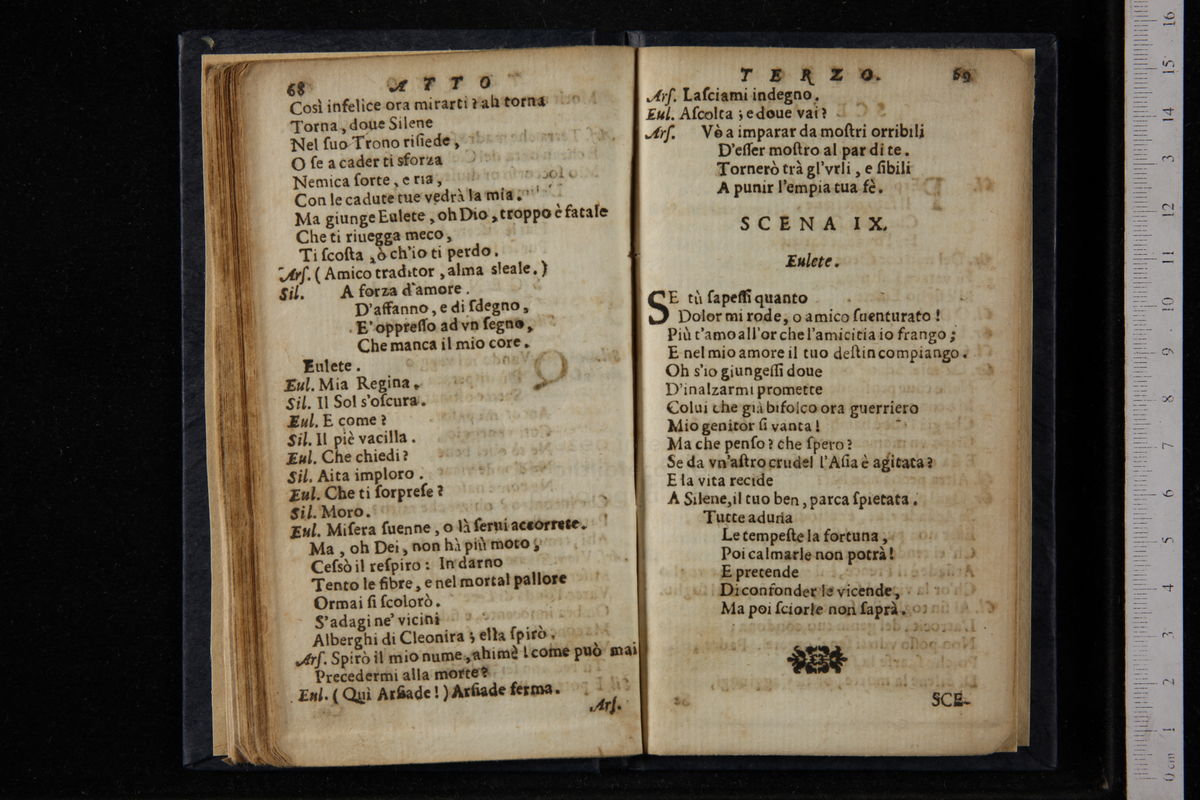 68 ATTO
Così infelice ora mirarti? ah torna
Torna, doue Silene
Nel ſuo Trono riſiede,
O ſe a cader ti sforza
Nemica ſorte, e ria,
Con le cadute tue vedrà la mia.
Ma giunge Eulete, oh Dio, troppo è fatale
Che ti riuegga meco,
Ti ſcoſta, ò ch'io ti perdo.
Arſ. (Amico traditor, alma sleale.)
Sil. A forza d'amore.
D'affanno, e di ſdegno,
E' oppreſſo ad vn ſegno,
Che manca il mio core.
Eulete.
Eul. Mia Regina.
Sil. Il Sol s'oſcura.
Eul. E come?
Sil. Il piè vacilla.
Eul. Che chiedi?
Sil. Aita imploro.
Eul. Che ti ſorpreſe?
Sil. Moro.
Eul. Miſera ſuenne, o là ſerui accorrete.
Ma, oh Dei, non hà più moto,
Ceſsò il reſpiro: Indarno
Tento le fibre, e nel mortal pallore
Ormai ſi ſcolorò.
S'adagi ne' vicini
Alberghi di Cleonira; ella ſpirò.
Arſ. Spirò il mio nume, ahimè! come può mai
Precedermi alla morte?
Eul. (Quì Arſiade!) Arſiade ferma.
Arſ.
TERZO. 69
Arſ. Laſciami indegno.
Eul. Aſcolta; e doue vai?
Arſ. Vò a imparar da moſtri orribili
D'eſſer moſtro al par di te.
Tornerò trà gl'vrli, e ſibili
A punir l'empia tua fè.
SCENA IX.
Eulete.
SE tù ſapeſſi quanto
Dolor mi rode, o amico ſuenturato!
Più t'amo all'or che l'amicitia io frango;
E nel mio amore il tuo deſtin compiango.
Oh s'io giungeſſi doue
D'inalzarmi promette
Colui che già bifolco ora guerriero
Mio genitor ſi vanta!
Ma che penſo? che ſpero?
Se da vn'aſtro crudel l'Aſia è agitata?
E la vita recide
A Silene, il tuo ben, parca ſpietata.
Tutte aduria
Le tempeſte la fortuna,
Poi calmarle non potrà!
E pretende
Di confonder le vicende,
Ma poi ſciorle non ſaprà.
SCE-
0 cm 1 2 3 4 5 6 7 8 9 10 11 12 13 14 15 16